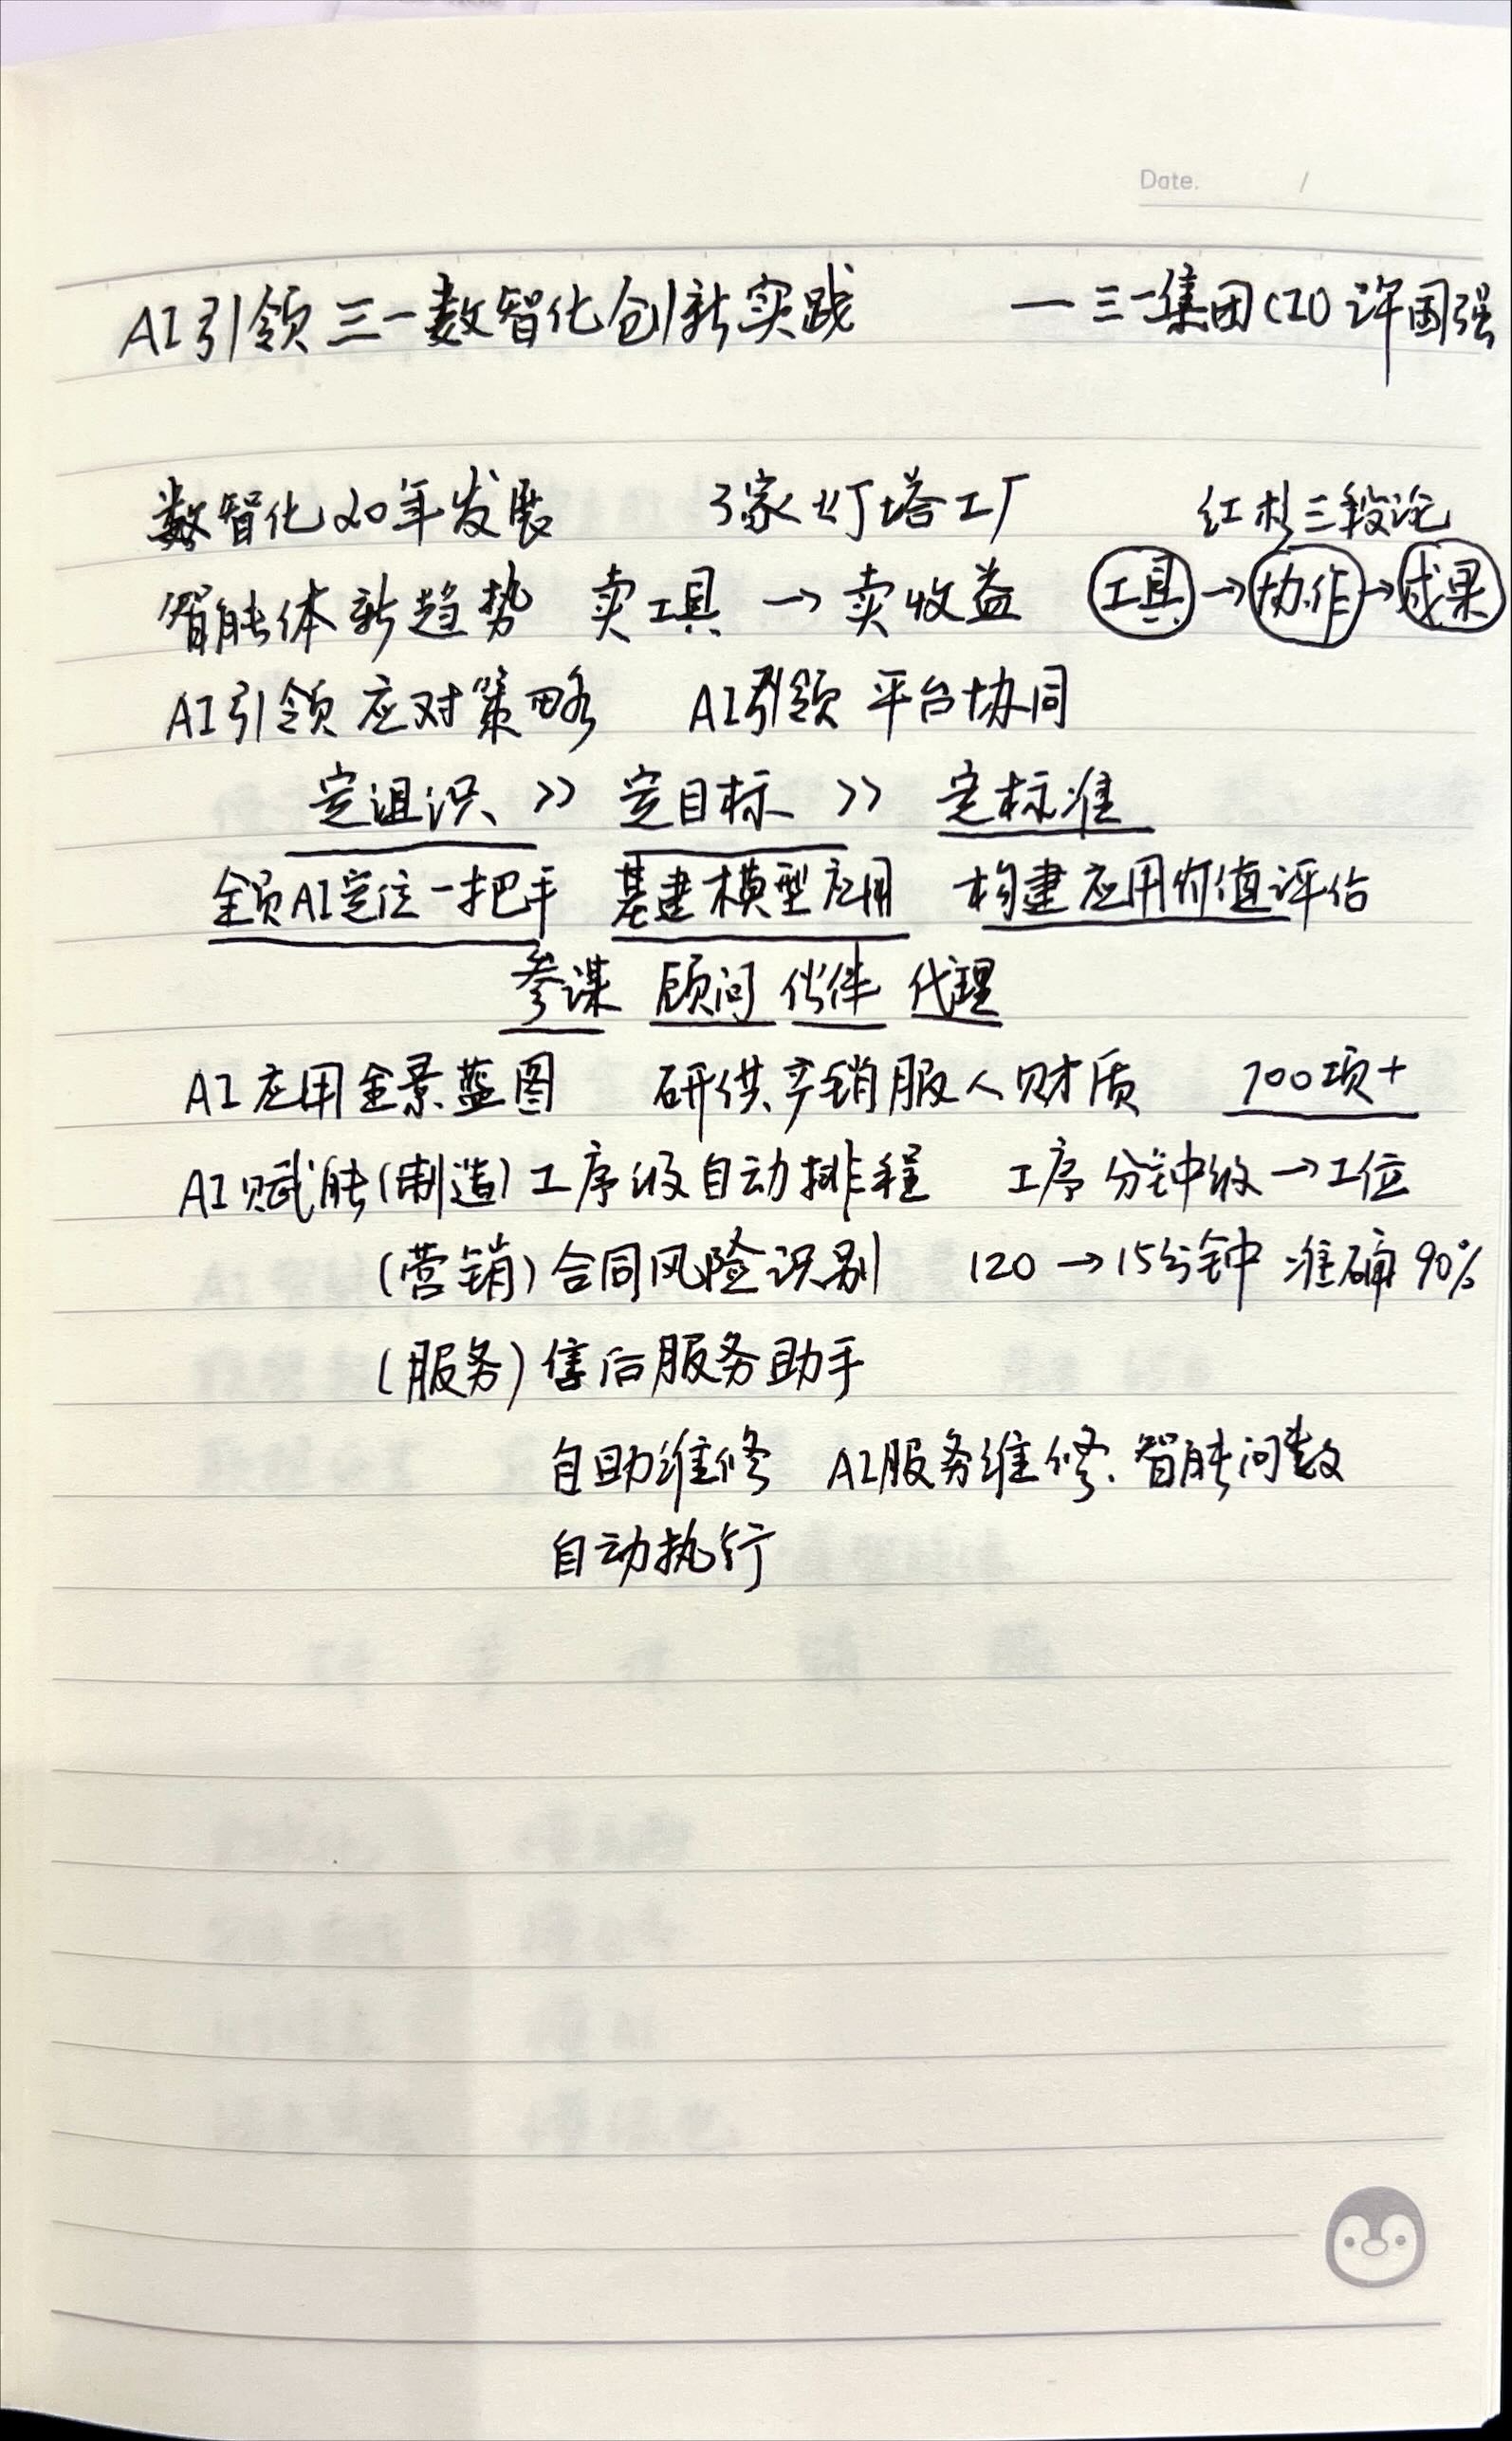 Date. /
AI引领三一数智化创新实践 — 三一集团CIO 许国强
数智化20年发展 3家灯塔工厂 红杉三段论
智能体新趋势 卖工具 → 卖收益 工具→协作→成果
AI引领应对策略 AI引领 平台协同
定组织 >> 定目标 >> 定标准
全员AI定位一把手 基建模型应用 构建应用价值评估
参谋 顾问 伙伴 代理
AI应用全景蓝图 研供产销服人财质 700项+
AI赋能(制造)工序级自动排程 工序分钟级→工位
(营销)合同风险识别 120→15分钟 准确90%
(服务)售后服务助手
自助维修 AI服务维修、智能问数
自动执行